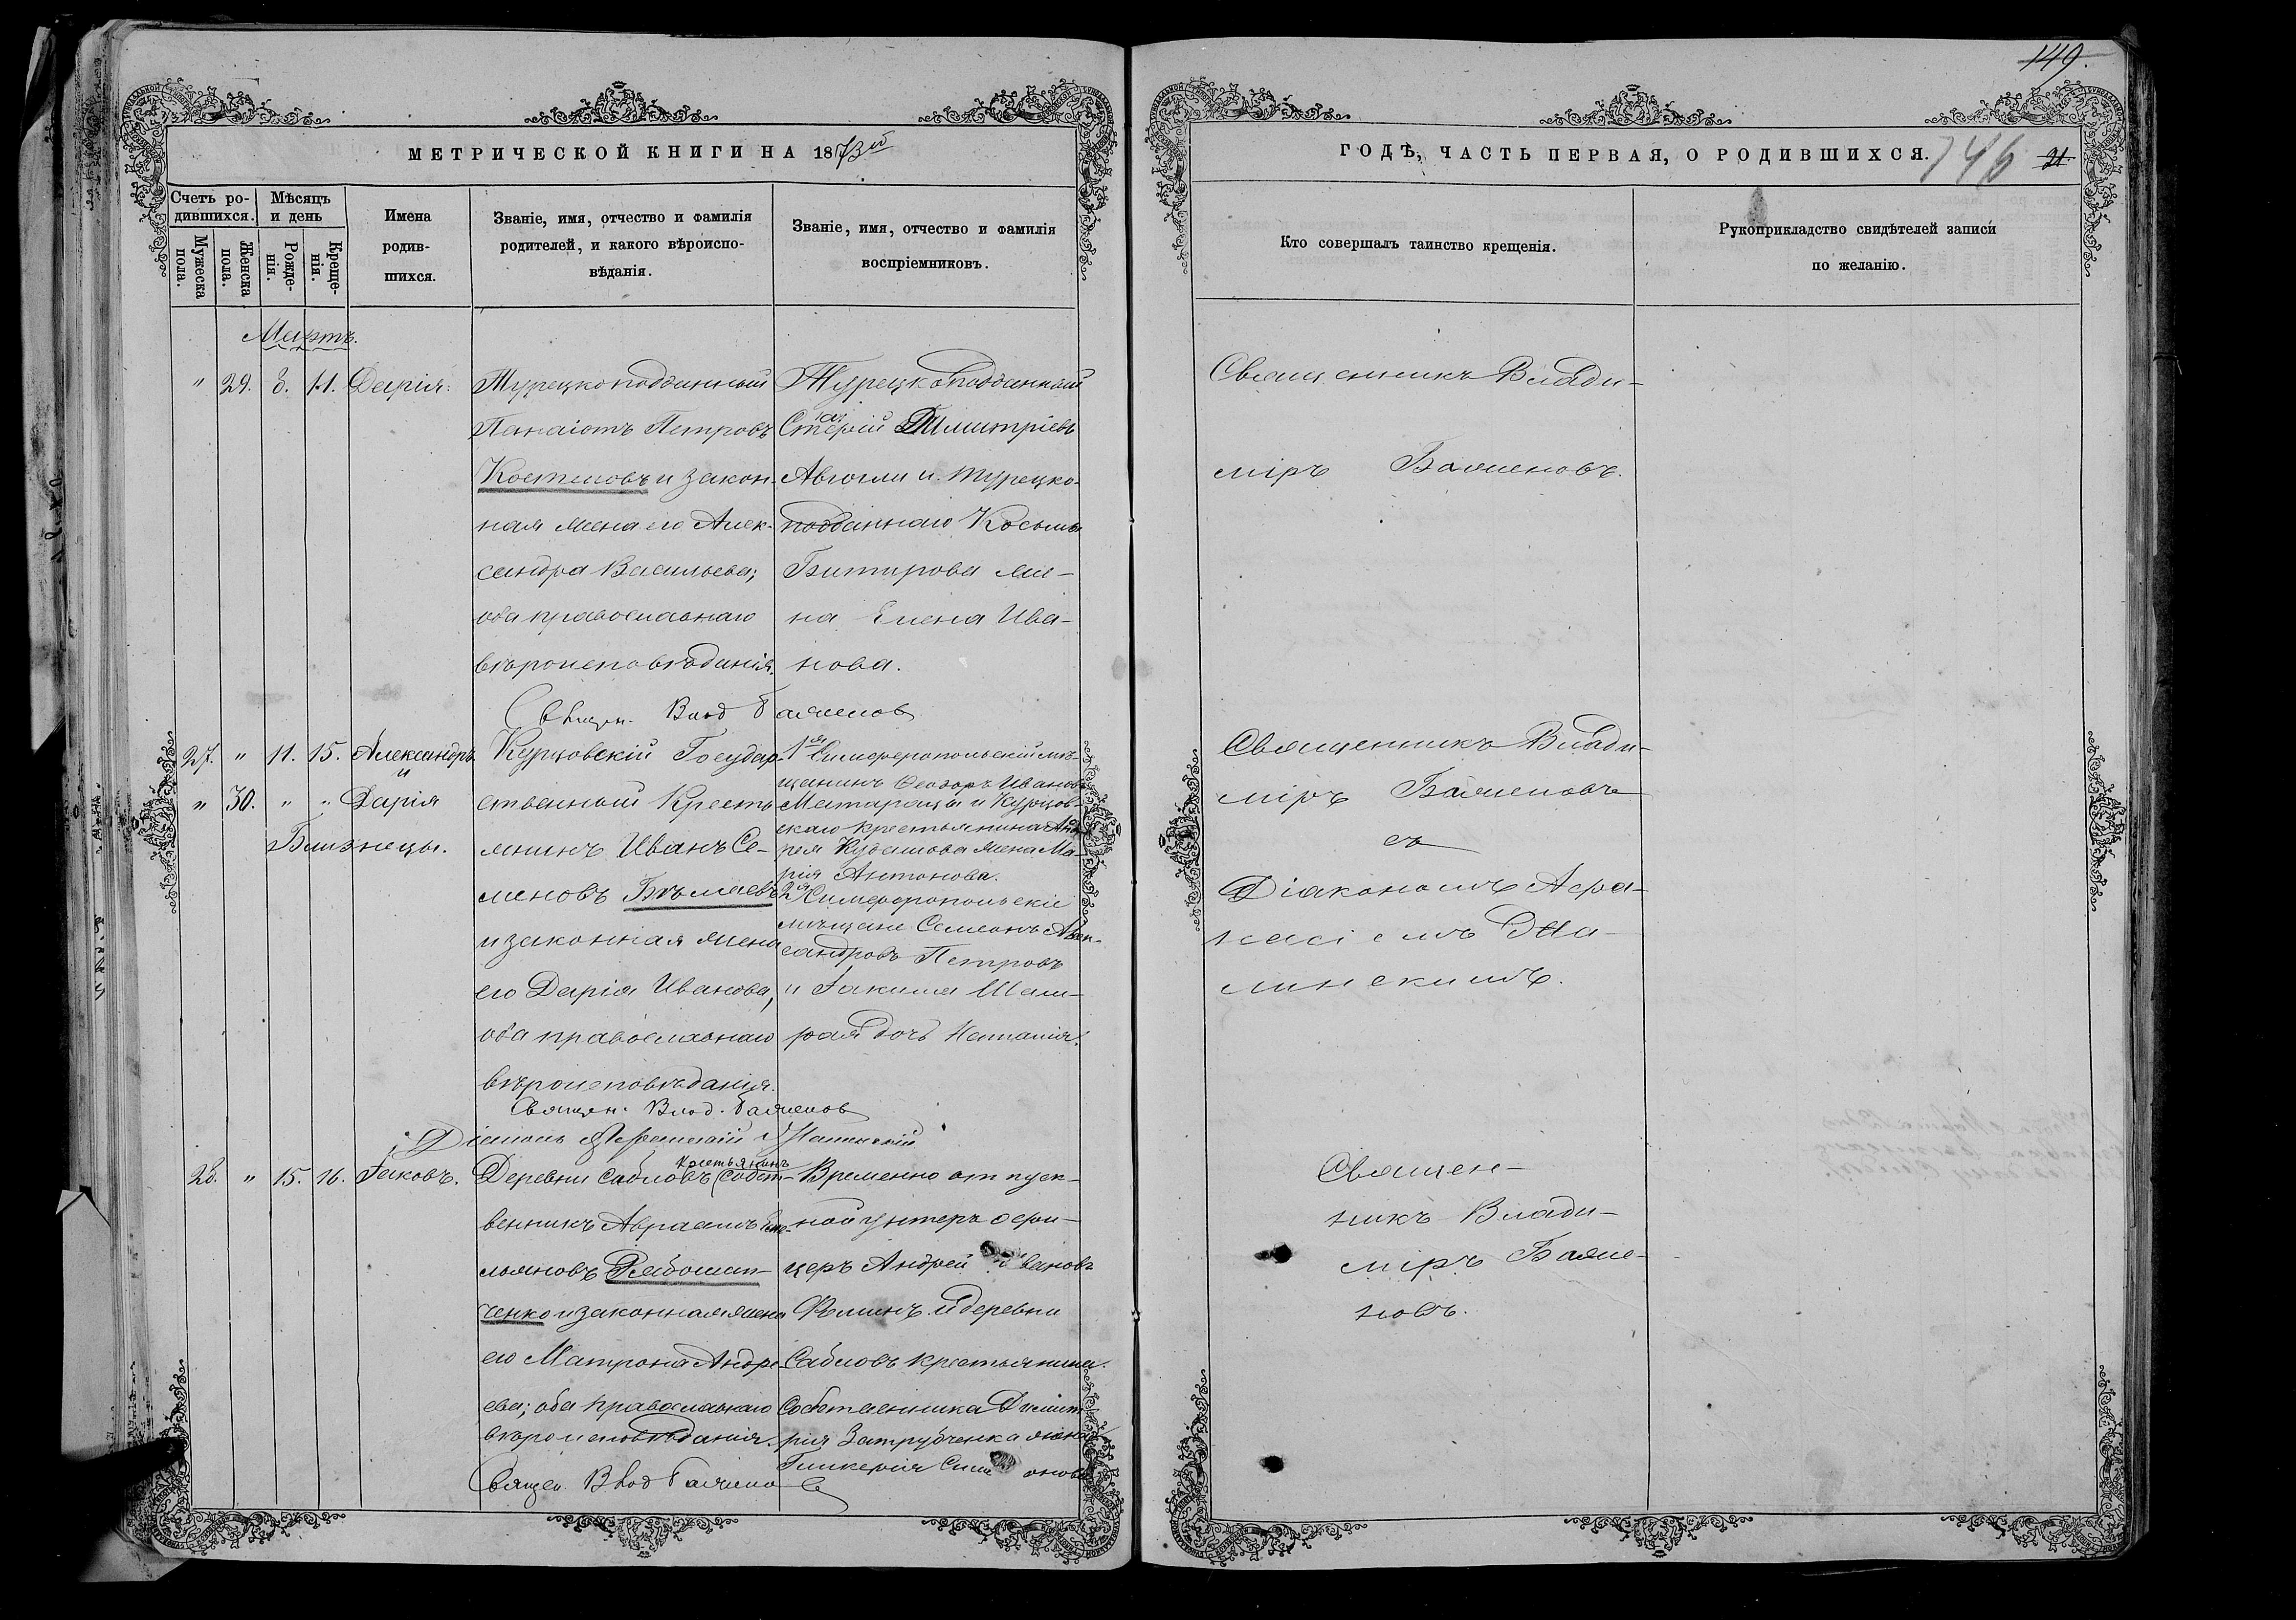 149.
МЕТРИЧЕСКОЙ КНИГИ НА 1873й
ГОДѢ, ЧАСТЬ ПЕРВАЯ, О РОДИВШИХСЯ.
146
21.
Счетъ ро-
дившихся.
Мужеска
пола.
Женска
пола.
Мѣсяцъ
и день
Рожде-
нія.
Креще-
нія.
Имена
родив-
шихся.
Званіе, имя, отчество и фамилія
родителей, и какого вѣроиспо-
вѣданія.
Званіе, имя, отчество и фамилія
воспріемниковъ.
Кто совершалъ таинство крещенія.
Рукоприкладство свидѣтелей записи
по желанію.
Мартъ.
" 29. 8. 11. Дарія.
Турецкоподданный
Панаіотъ Петровъ
Костиновъ и закон-
ная жена его Алек-
сандра Васильева;
оба православнаго
вѣроисповѣданія.
Турецкоподданный
Стерій Димитріевъ
и турецко-
подданнаго Косьмы
же-
на Елена Ива-
нова.
Священникъ Влади-
міръ Баженовъ.
Священ. Влад Баженовъ
27. " 11. 15. Александръ
и
" 30. " " Дарія
Близнецы.
Курцовскій Государ-
ственный Кресть
янинъ Иванъ Се-
меновъ Бѣляевъ
и законная жена
его Дарія Иванова,
оба православнаго
вѣроисповѣданія.
1я Симферопольскій мѣ-
щанинъ Ѳеодоръ Ивановъ
и Курцов-
скаго крестьянина Анд-
рея жена Ма-
рія Антонова.
2я Симферопольскіе
мѣщане Симеонъ Алек-
сандровъ Петровъ
и Іакима
дочь Наталія.
Священникъ Влади-
міръ Баженовъ
съ
Діакономъ Аѳа-
насіемъ
Священ. Влад. Баженовъ
Діаконъ
28. " 15. 16. Іаковъ.
крестьянинъ
Деревни Сабловъ Собст-
венникъ Авраамъ Еме-
льяновъ
ченко и законная жена
его Матрона Андре
ева; оба православнаго
вѣроисповѣданія.
Временно отпуск-
ной унтеръ офи-
церъ Андрей Ивановъ
Ѳоминъ и деревни
Сабловъ крестьянина
Собственника Димит
рія Затрубченка жена
Гликерія Симеонова
Священ-
никъ Влади-
міръ Баже-
новъ.
Священ. Влад Баженовъ